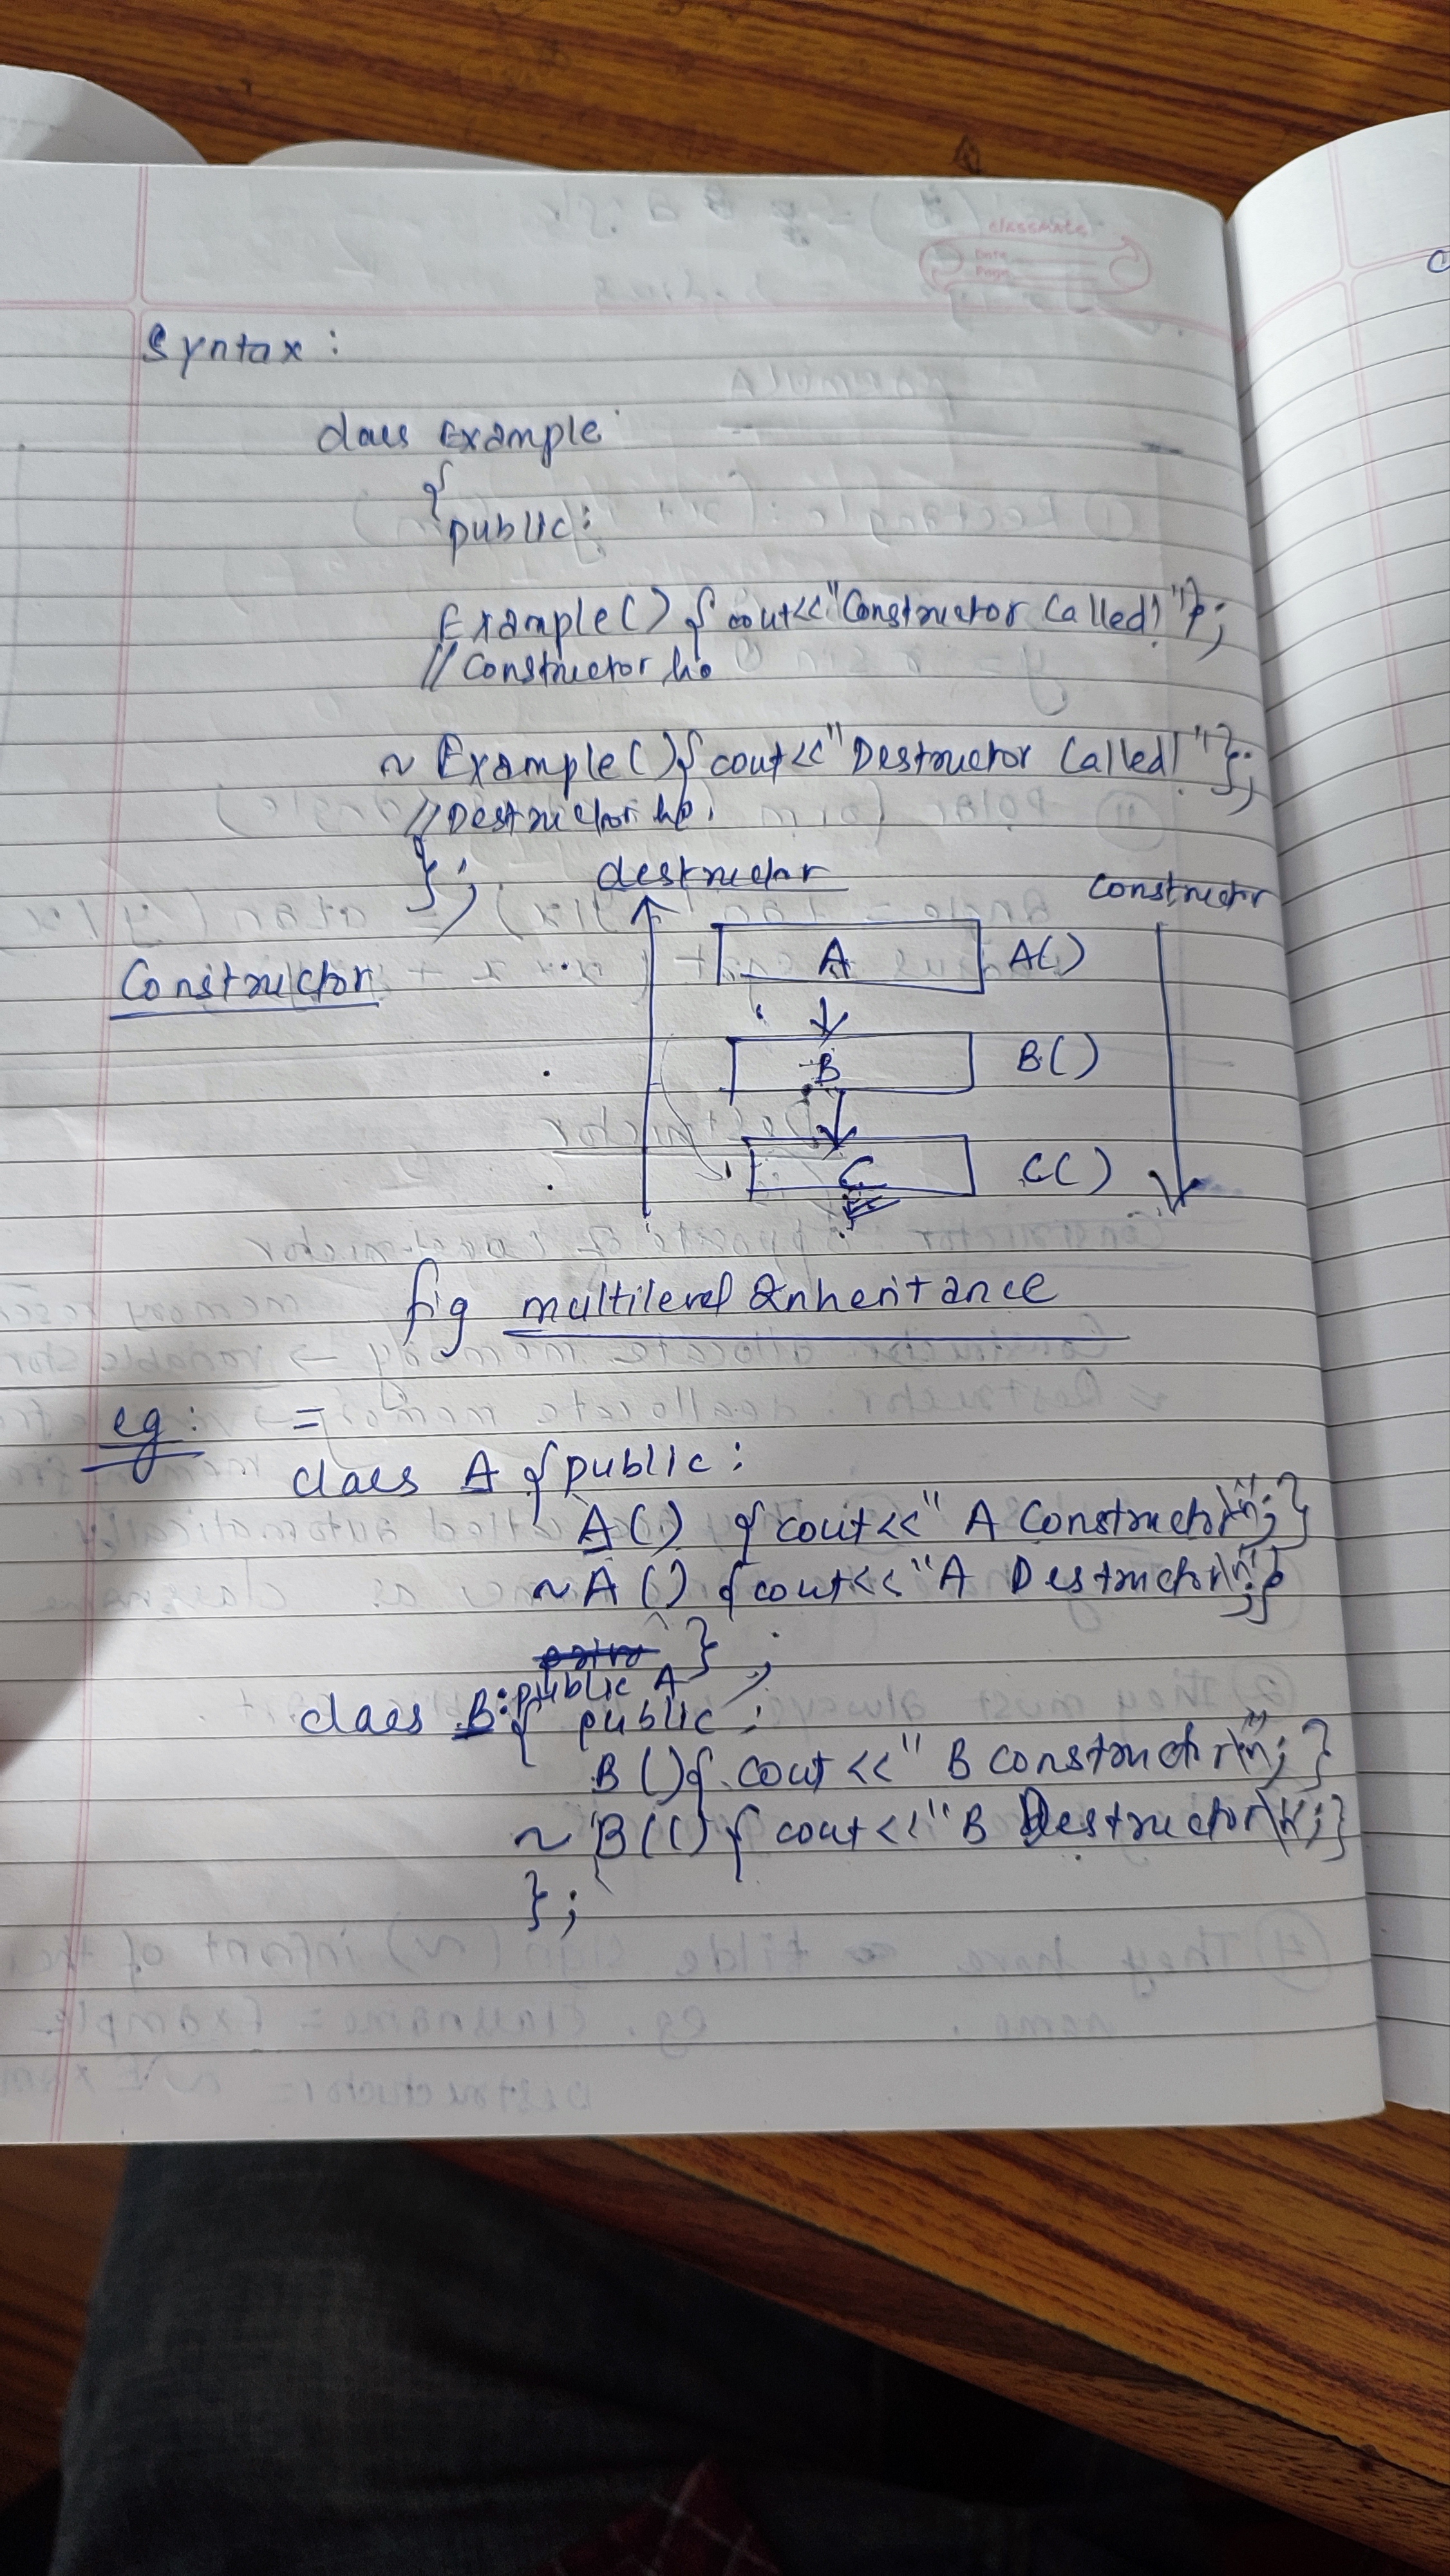 Syntax:
class Example
{
public:
Example() { cout<<"Constructor Called!"};
// Constructor ho
~ Example(){ cout<<"Destructor Called!"};
// Destructor ho.
};
destructor
constructor
A
A()
Constructor
B
B()
C
C()
fig multilevel Inheritance
eg: =
class A { public:
A() { cout<<" A Constructor\n"; }
~ A () { cout<<"A Destructor\n"; }
};
class B: public A { public:
B () { cout <<" B constructor\n"; }
~ B() { cout <<"B Destructor\n"; }
};